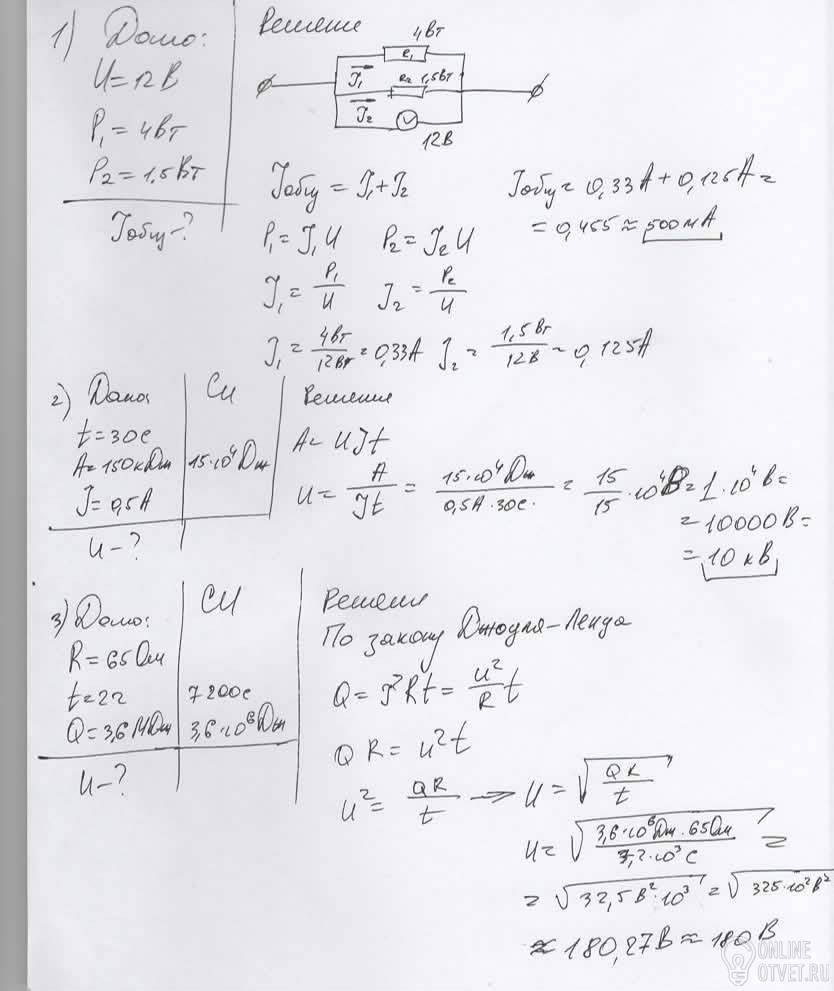 1) Дано:
U = 12 В
P₁ = 4 Вт
P₂ = 1,5 Вт
Jобщ - ?
Решение
4 Вт
R₁
J₁
R₂ 1,5 Вт
J₂
V
12 В
Jобщ = J₁ + J₂
P₁ = J₁ U P₂ = J₂ U
J₁ = P₁/U J₂ = P₂/U
J₁ = 4 Вт/12 Вт = 0,33 А J₂ = 1,5 Вт/12 В = 0,125 А
Jобщ = 0,33 А + 0,125 А =
= 0,455 ≈ 500 мА
2) Дано:
t = 30 с
A = 150 кДж
J = 0,5 А
U - ?
СИ
15·10⁴ Дж
Решение
A = UJt
U = A/Jt = 15·10⁴ Дж/0,5 А · 30 с = 15/15 · 10⁴ В = 1·10⁴ В =
= 10000 В =
= 10 кВ
3) Дано:
R = 65 Ом
t = 2 ч
Q = 3,6 МДж
U - ?
СИ
7200 с
3,6·10⁶ Дж
Решение
По закону Джоуля-Ленца
Q = J²Rt = U²/R t
QR = U²t
U² = QR/t → U = √(QR/t)
U = √(3,6·10⁶ Дж · 65 Ом/7,2·10³ с) =
= √(32,5 В² · 10³) = √(325·10² В²)
≈ 180,27 В ≈ 180 В
ONLINE
OTVET.RU